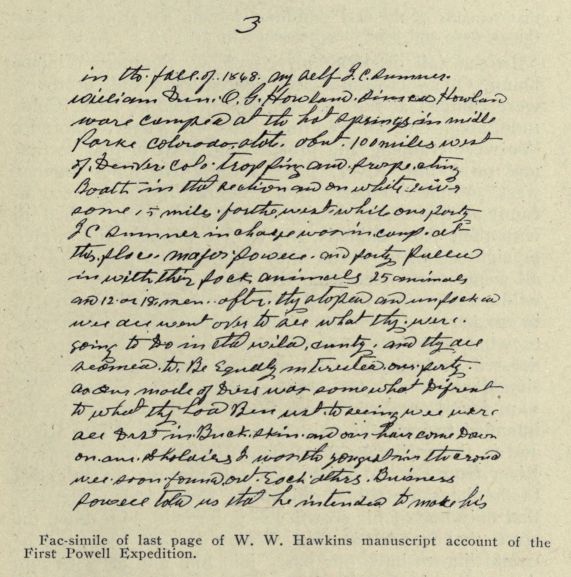 3
in the fall of 1868. my self J. C. Sumner.
William Dun. O. G. Howland. Howland
ware camped at the hot springs in midle
Parke colorado. state. abut. 100 miles west
of. Denver colo. trapping and prospecting
Boath in that section and on white river
some 15 mile. forthe west. while our party
J C Sumner in charge was in camp. at
this place. major Powell. and party pulled
in with ther pack animals 25 animals
and 12 or 18 men. after. thy stoped and unpacked
wee all went over to see what thy. were.
going to Do in that wild. cuntry. and thy all
seamed. to. Be Equally intrested our party.
as our mode of Dress was somewhat Difrent
to what thy had Ben ust to seeing wee were
all Drst in Buck. skin. and our hair come Down
on our sholders I was the yongest in the croud
wee soon found out Each others. Buisness
Powell told us that he intended to make his
Fac-simile of last page of W. W. Hawkins manuscript account of the
First Powell Expedition.